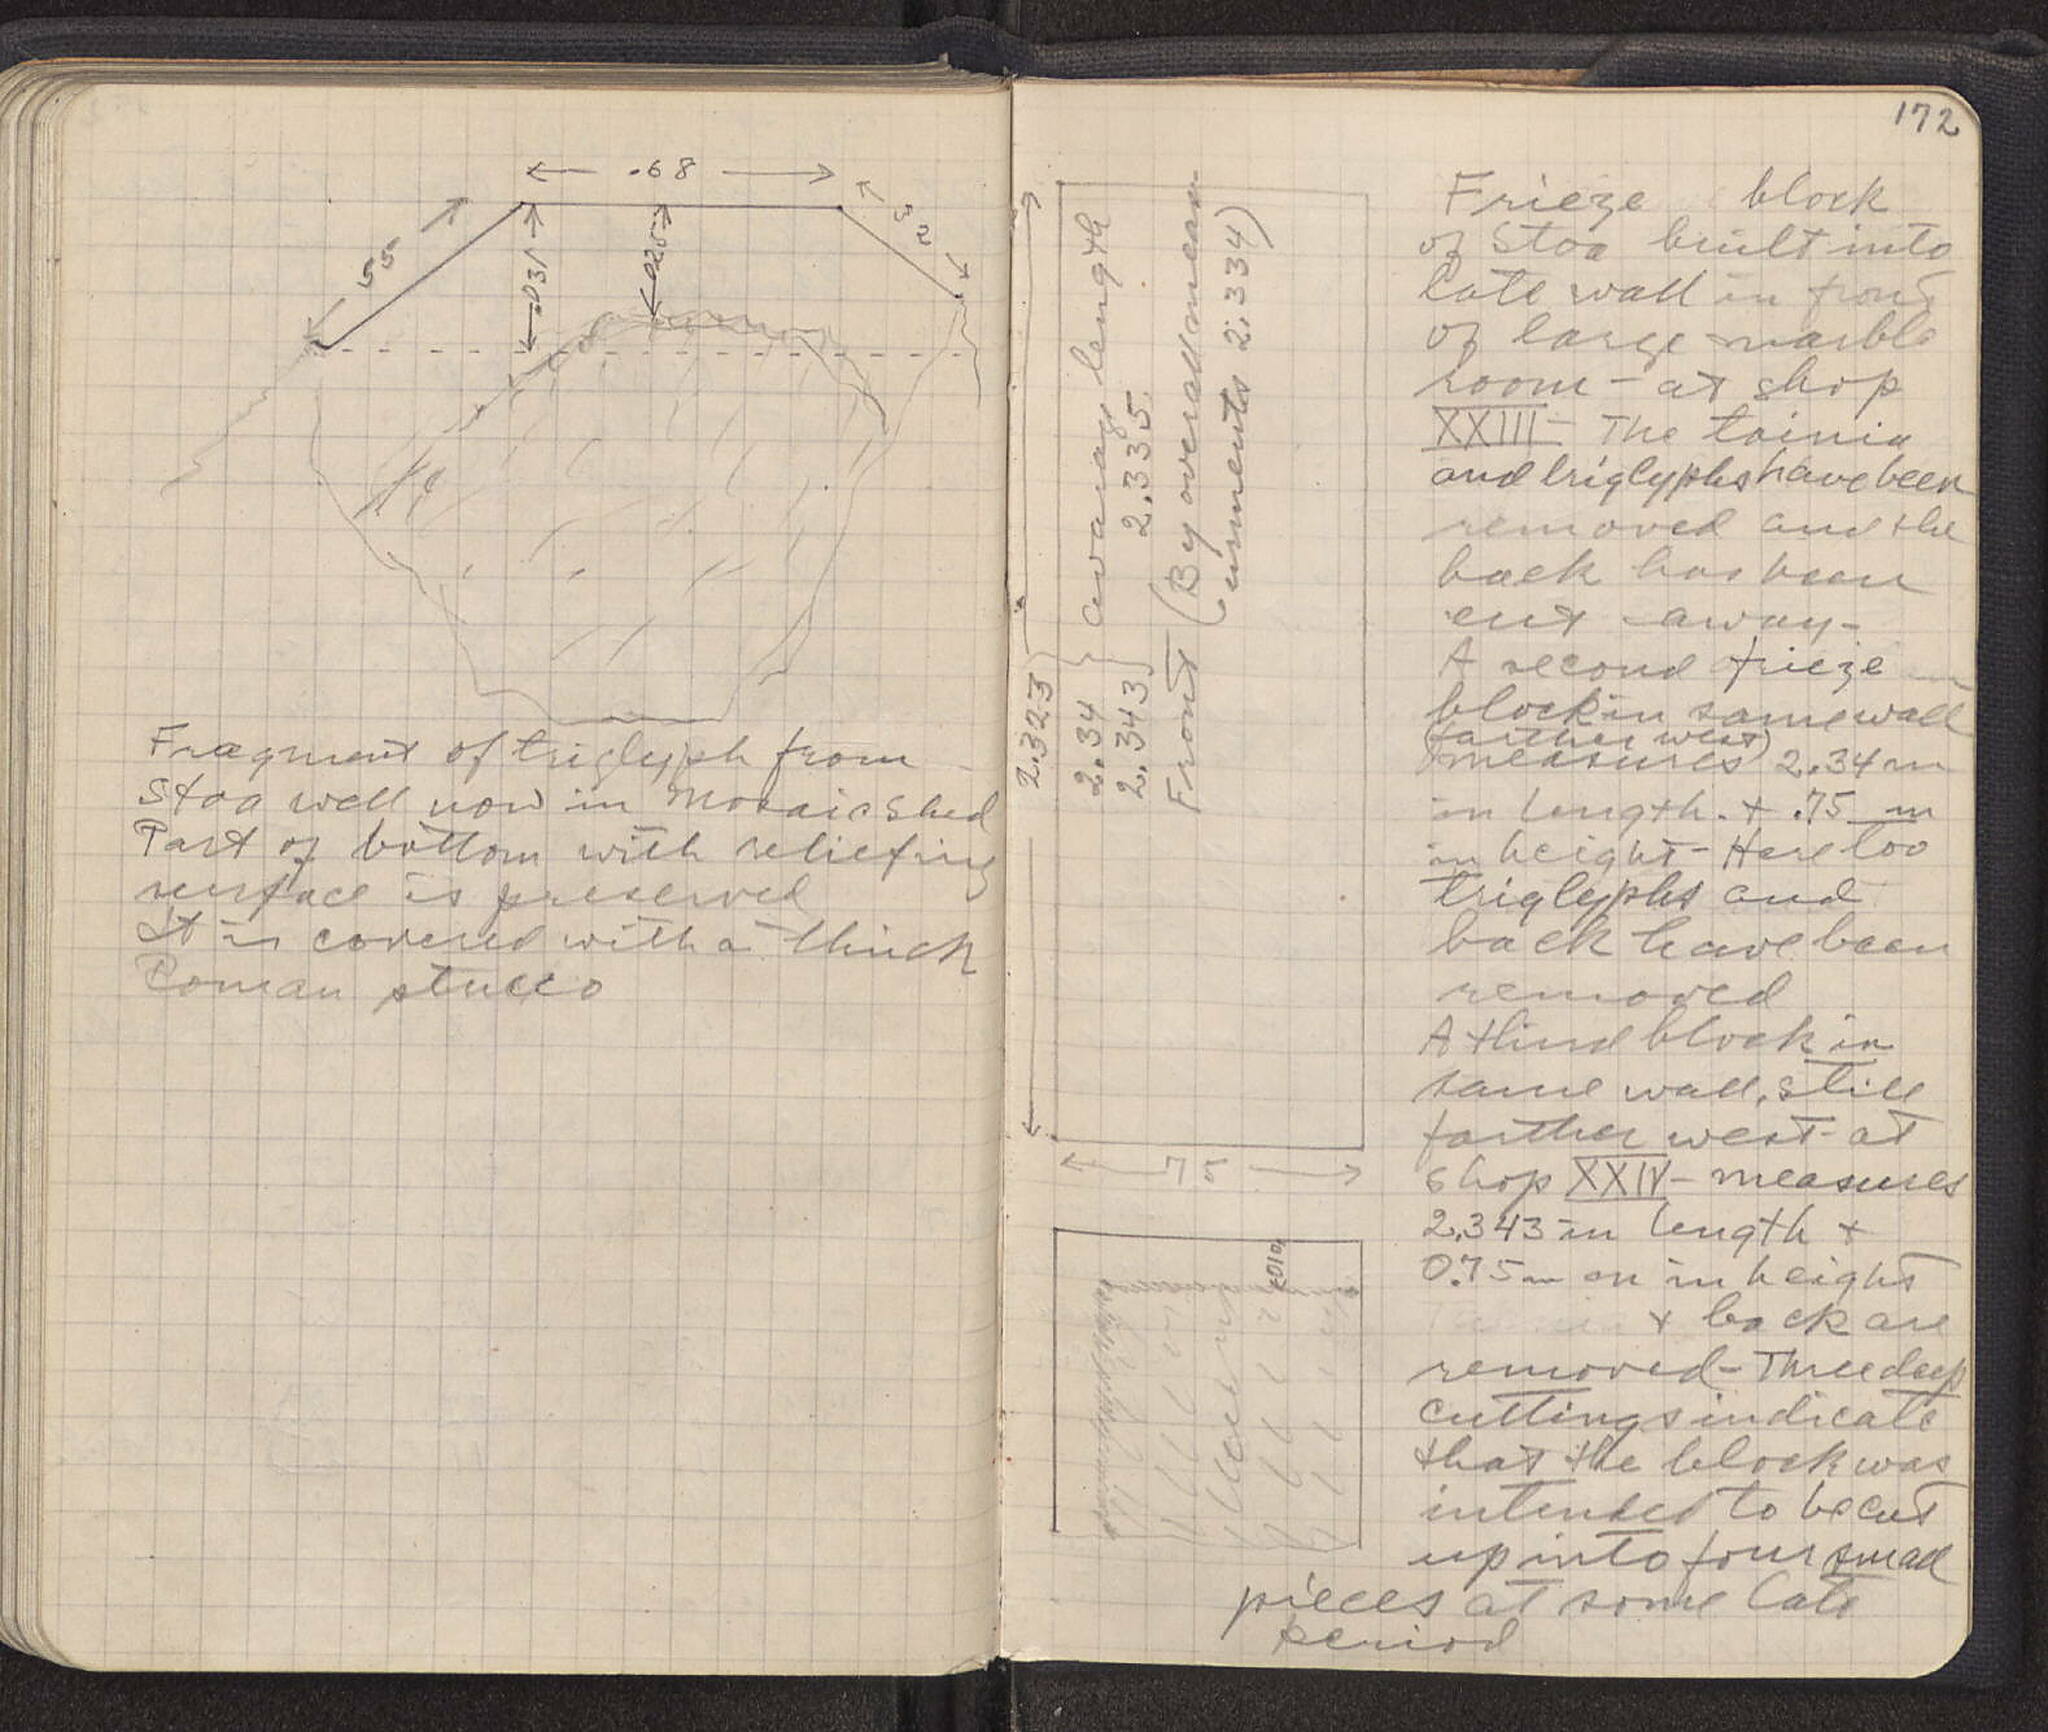 .68
.55
.52
.031
.025
Fragment of triglyph from
Stoa well now in Mosaic Shed
Part of bottom with reliefing
surface is preserved
It is covered with a thick
Roman stucco
172
2.323
2.34
2.343
average length
2.335
Front (By overall meas-
urements 2.334)
75
Frieze block
of Stoa built into
late wall in front
of large marble
room - at shop
XXIII - The tainia
and triglyphs have been
removed and the
back has been
cut away -
A second frieze
block in same wall
(farther west)
measures 2.34 m
in length + .75 m
in height - Here too
triglyphs and
back have been
removed
A third block in
same wall, still
farther west - at
shop XXIV - measures
2.343 in length +
0.75 m in height
+ back are
removed - Three deep
cuttings indicate
that the block was
intended to be cut
up into four small
pieces at some late
period